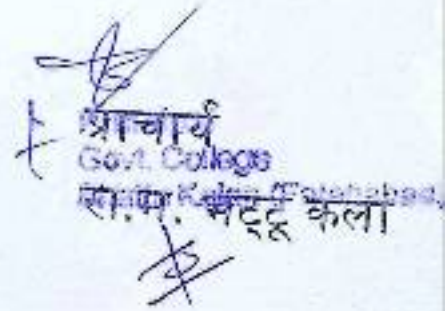 प्राचार्य
Govt. College
Kalan (Fatehabad)
रा.म. भट्टू कलां